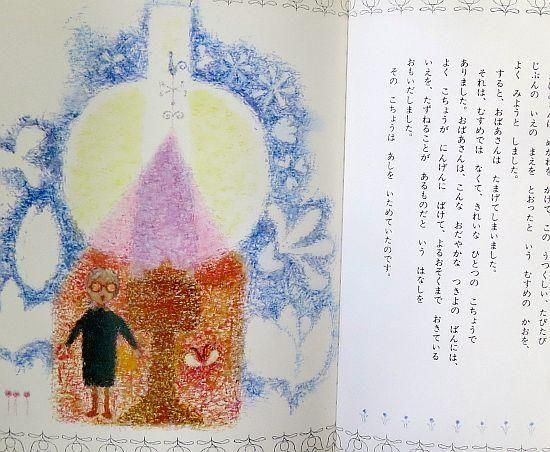 めがねを かけて、この うつくしい、たびたび
じぶんの いえの まえを とおったと いう むすめの かおを、
よく みようと しました。
すると、おばあさんは たまげてしまいました。
それは、むすめでは なくて、きれいな ひとつの こちょうで
ありました。おばあさんは、こんな おだやかな つきよの ばんには、
よく こちょうが にんげんに ばけて、よるおそくまで おきている
いえを、たずねることが あるものだと いう はなしを
おもいだしました。
その こちょうは あしを いためていたのです。